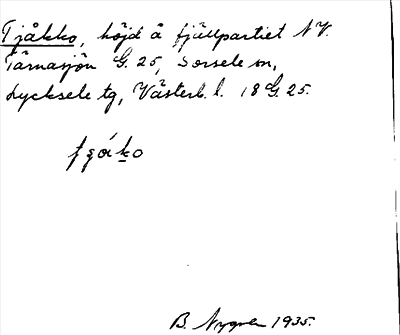 Tjåkko, höjd å fjällpartiet N.V.
Tärnasjön G. 25, Sorsele sn,
Lycksele tg, Västerb. l. 18 G. 25.
B. Nygren 1935.